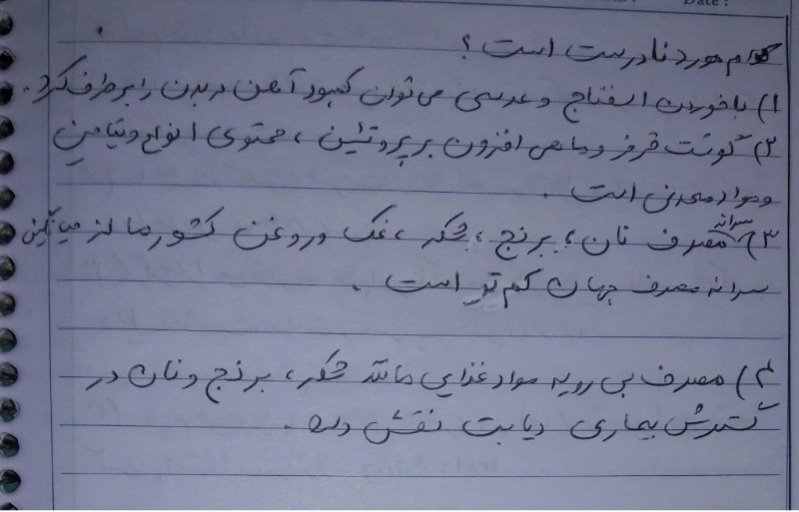 Date :
کدام مورد نادرست است ؟
۱) با خوردن اسفناج و عدسی می توان کمبود آهن در بدن را برطرف کرد .
۲) گوشت قرمز و ماهی افزون بر پروتئین ، محتوی انواع ویتامین
و مواد معدنی است .
۳) سرانه مصرف نان ، برنج ، شکر ، نمک و روغن کشور ما از میانگین
سرانه مصرف جهان کم تر است .
۴) مصرف بی رویه مواد غذایی مانند شکر ، برنج و نان در
گسترش بیماری دیابت نقش دارد .